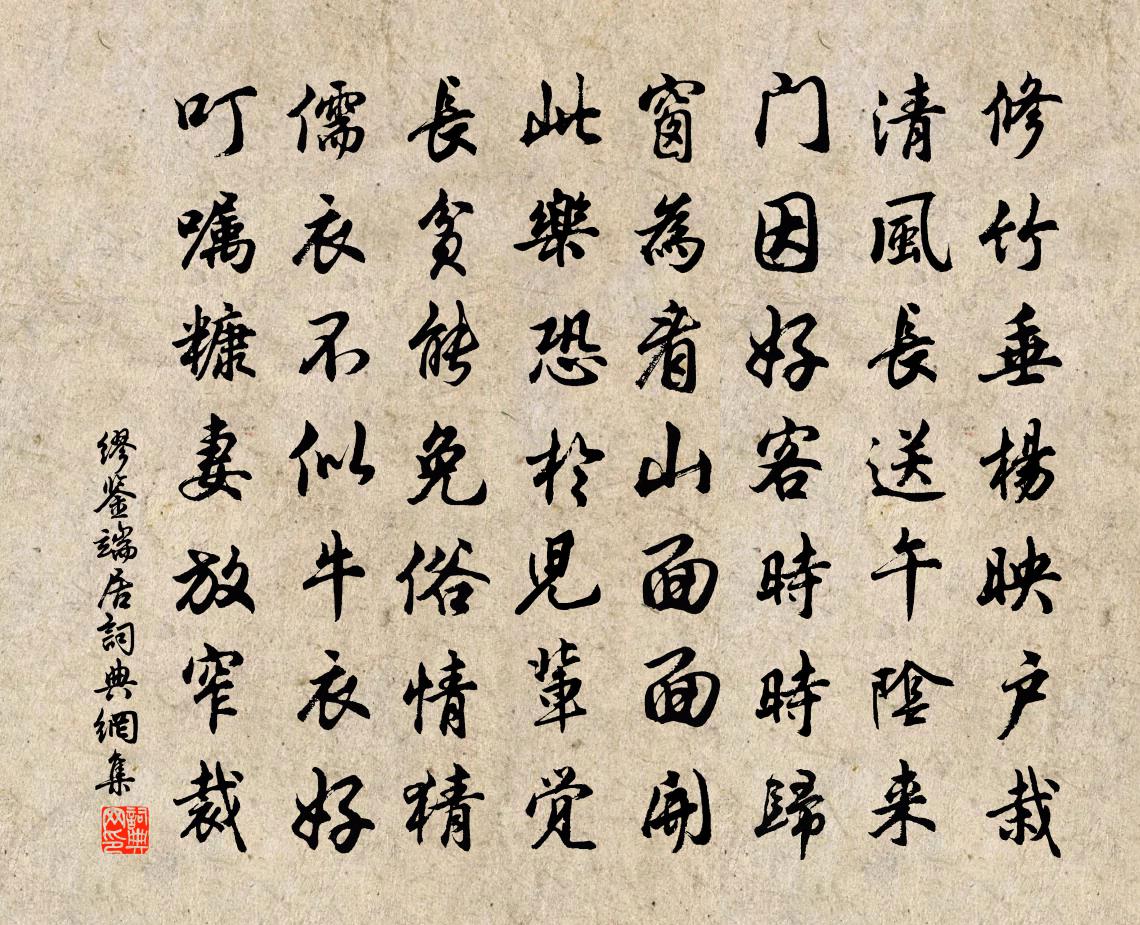 修竹垂楊映户栽
清風長送午陰来
门因好客時時歸
窗為看山面面開
此樂恐於兒輩觉
長貧能免俗情猜
儒衣不似牛衣好
叮嘱糠妻放窄裁
缪鉴端居詞典網集
詞典网印